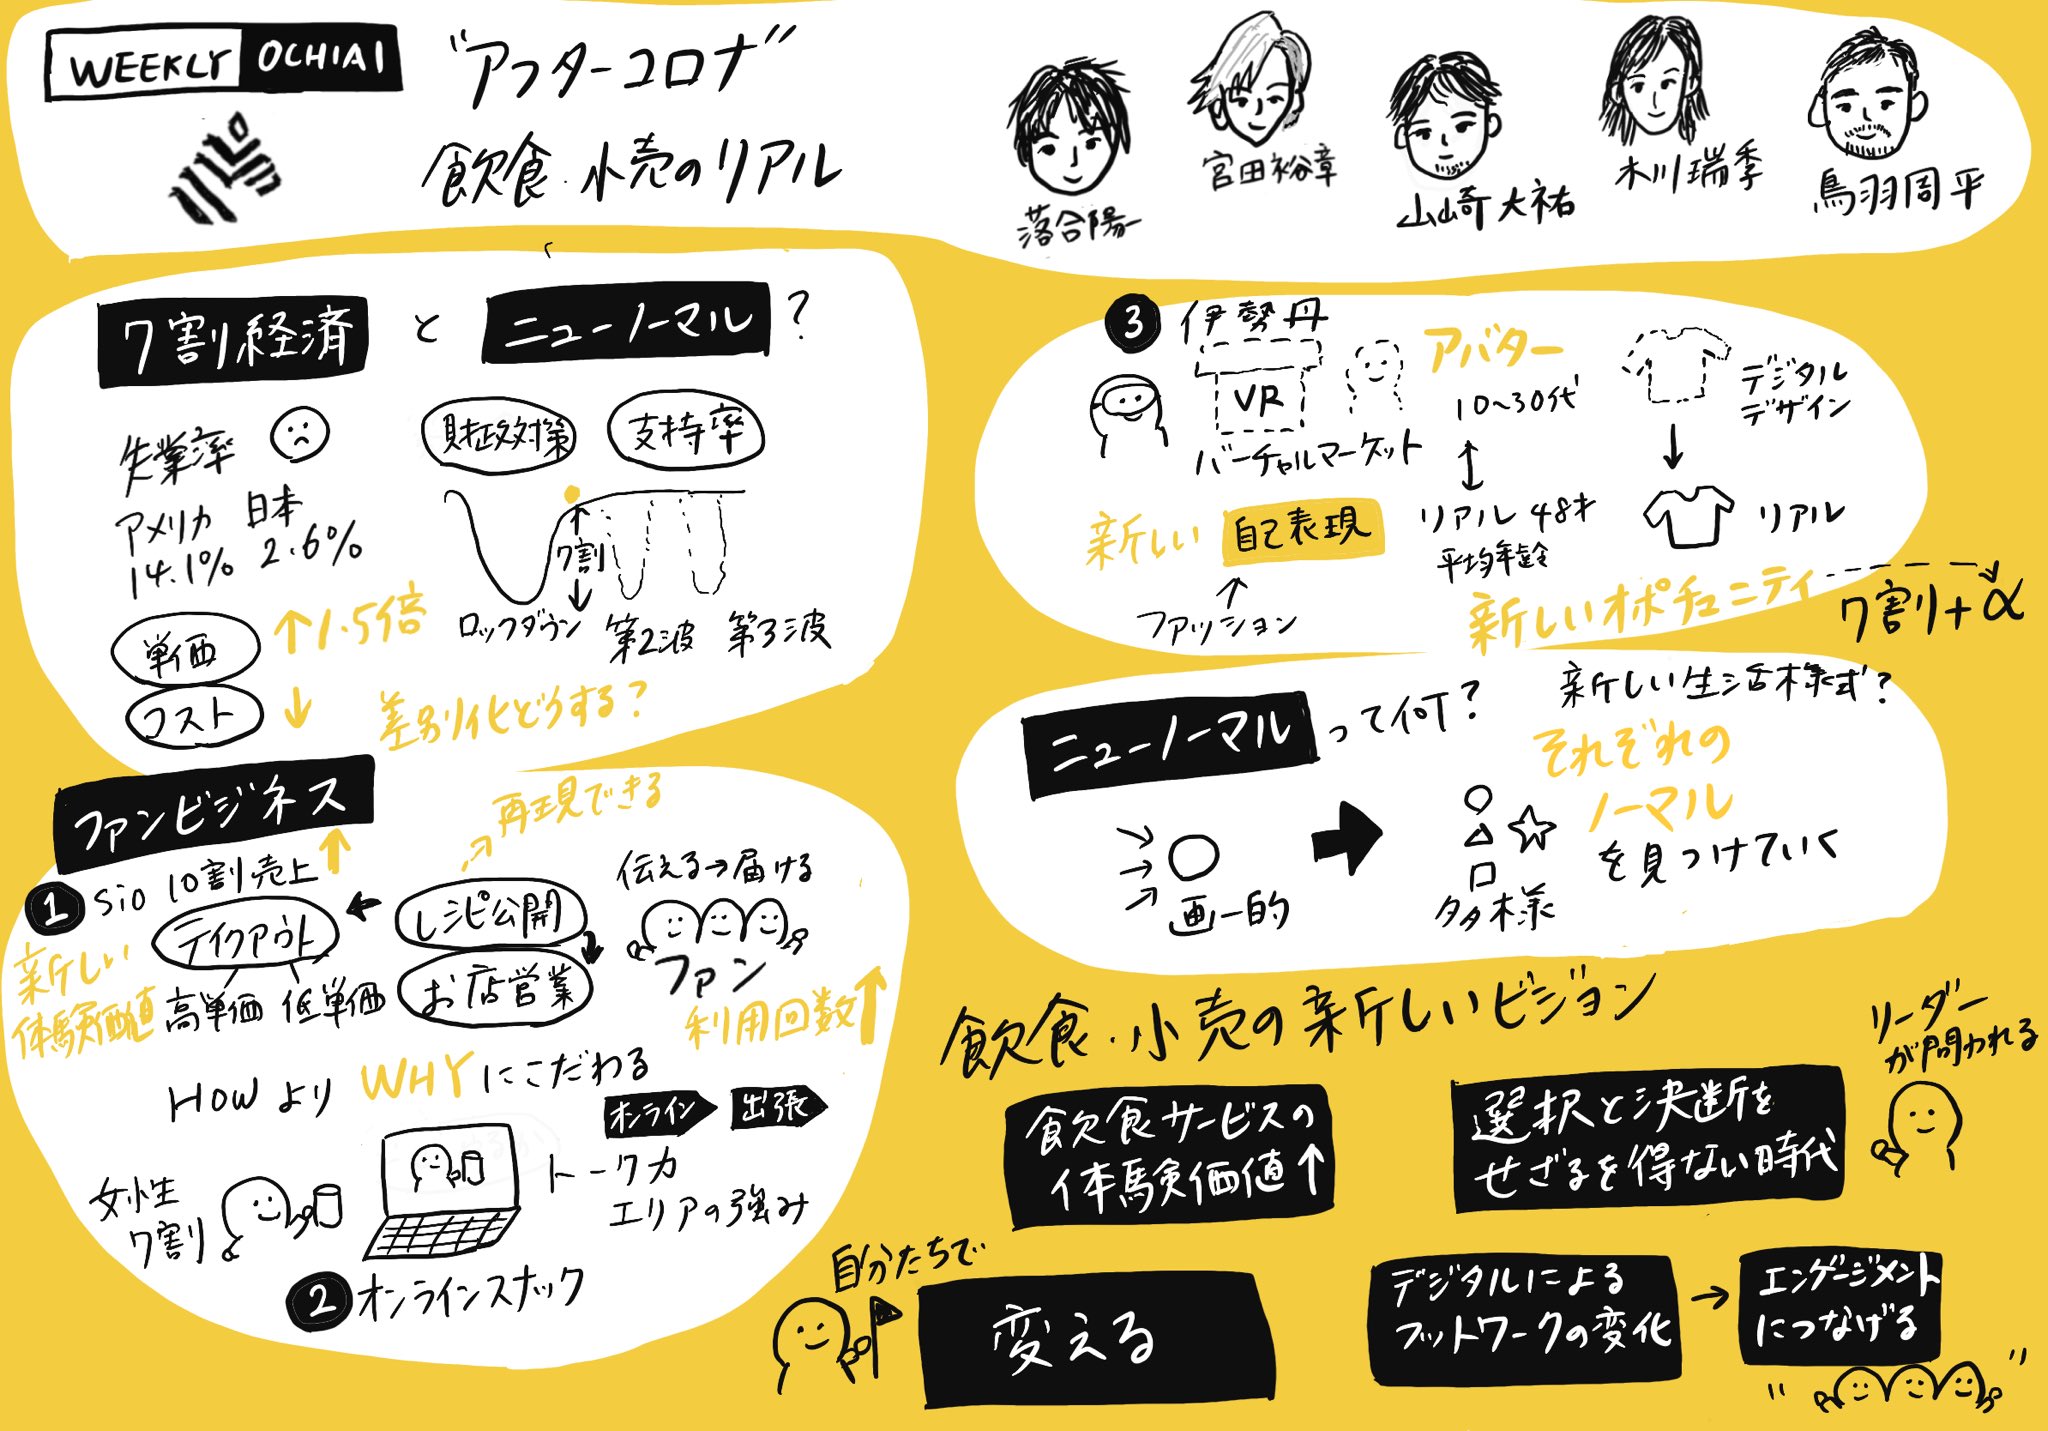 WEEKLY OCHIAI
"アフターコロナ"
飲食・小売のリアル
落合陽一
宮田裕章
山崎大祐
木川瑞季
鳥羽周平
7割経済 と ニューノーマル?
失業率
アメリカ 日本
14.1% 2.6%
財政対策 支持率
7割
ロックダウン 第2波 第3波
単価 ↑1.5倍
コスト ↓
差別化どうする?
ファンビジネス
1 sio 10割売上↑
再現できる
テイクアウト ← レシピ公開
お店営業
高単価 低単価
新しい
体験価値
伝える→届ける
ファン
利用回数↑
HOWより WHYにこだわる
オンライン 出張
女性
7割
トーク力
エリアの強み
2 オンラインスナック
3 伊勢丹
VR
バーチャルマーケット
アバター
10〜30代
リアル 48才
平均年齢
デジタル
デザイン
↓
リアル
新しい 自己表現
↑
ファッション
新しいオポチュニティ
7割+α
ニューノーマル って何?
新しい生活様式?
それぞれの
ノーマル
を見つけていく
画一的
多様
飲食・小売の新しいビジョン
リーダー
が問われる
飲食サービスの
体験価値↑
選択と決断を
せざるを得ない時代
自分たちで
変える
デジタルによる
フットワークの変化
→
エンゲージメント
につなげる